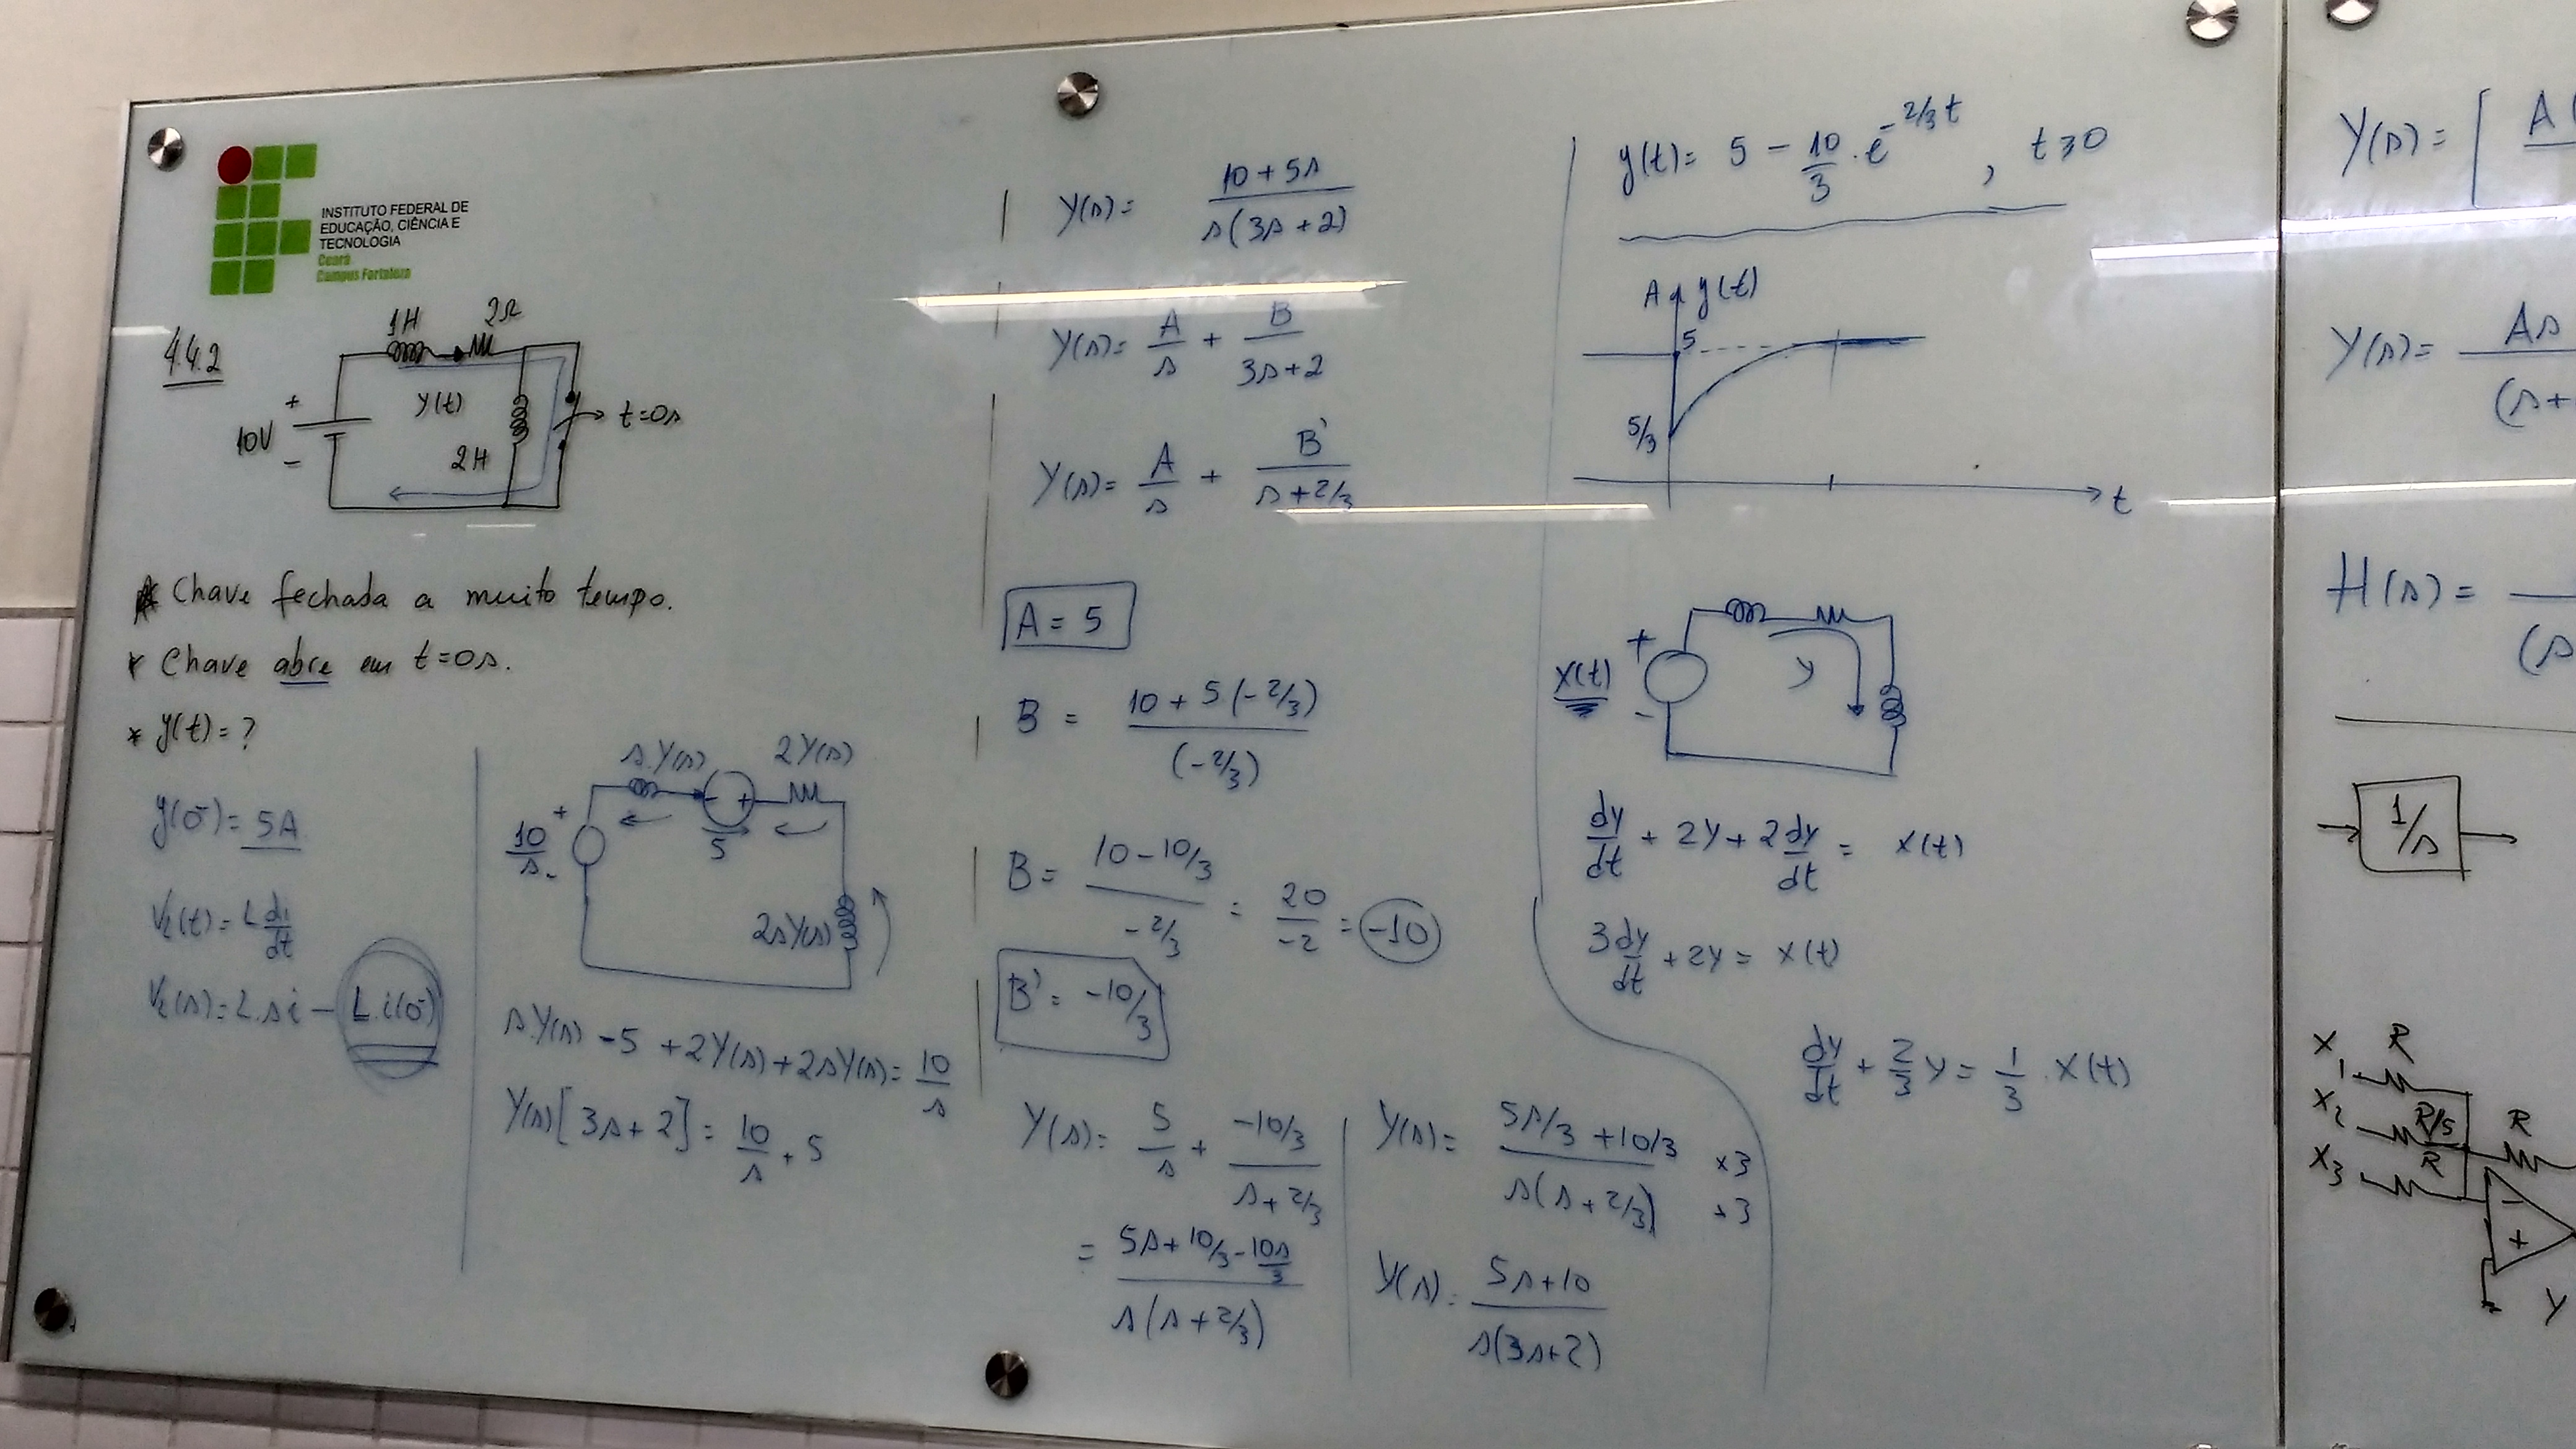 INSTITUTO FEDERAL DE
EDUCAÇÃO, CIÊNCIA E
TECNOLOGIA
Ceará
Campus Fortaleza
4.4.2
1H
2Ω
+
10V
-
y(t)
2H
t=0s
* Chave fechada a muito tempo.
* Chave abre em t=0s.
* y(t)=?
y(0⁻)= 5A
V_L(t)= L di/dt
V_L(s)= L.si - L.i(0⁻)
s.Y(s)
2Y(s)
+
10/s
-
- +
5
2sY(s)
sY(s) -5 +2Y(s)+2sY(s)= 10/s
Y(s)[3s+2]= 10/s + 5
Y(s)= (10+5s)/(s(3s+2))
Y(s)= A/s + B/(3s+2)
Y(s)= A/s + B'/(s+2/3)
A = 5
B = (10+5(-2/3))/(-2/3)
B= (10-10/3)/(-2/3) = 20/-2 = -10
B'= -10/3
Y(s)= 5/s + (-10/3)/(s+2/3)
= (5s+10/3-10s/3)/(s(s+2/3))
Y(s)= (5s/3+10/3)/(s(s+2/3)) ×3 ×3
Y(s)= (5s+10)/(s(3s+2))
y(t)= 5 - 10/3 . e^(-2/3 t) , t≥0
A y(t)
5
5/3
t
+
x(t)
-
y
dy/dt + 2y + 2dy/dt = x(t)
3dy/dt + 2y = x(t)
dy/dt + 2/3 y = 1/3 . x(t)
Y(s)= [ A
Y(s)= As
(s+
H(s)=
(s
1/s
X1 R
X2 R/5 R
X3 R
-
+
Y